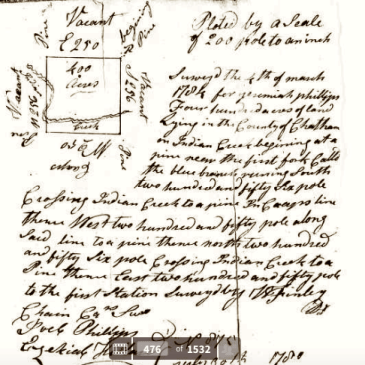 Vacant
E 250
Pine
begining
Pine
400
Acres
Vacant
S 256
Vacant
Creek
Pine
Ploted by a Scale
of 200 pole to an inch
Survey'd the 4th of march
for Jeremiah phillips
Four hundred acres of land
Lying in the County of Chatham
on Indian Creek begining at a
pine near the first fork Call'd
the blue branch runing South
two hundred and fifty Six pole
Crossing Indian Creek to a pine In line
thence West two hundred and fifty pole along
Said line to a pine thence north two hundred
and fifty Six pole Crossing Indian Creek to a
Pine thence East two hundred and fifty pole
to the first Station Survey'd by
Chain
Phillips
Ezekiah
476 of 1532